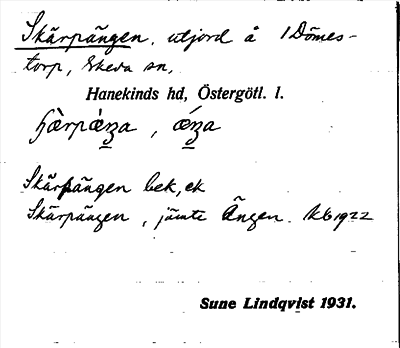 Skärpängen, utjord å 1 Dömes-
torp, Skeda sn,
Hanekinds hd, Östergötl. l.
Skärpängen bek, ek
Skärpängen, jämte Ängen. kb 1922
Sune Lindqvist 1931.